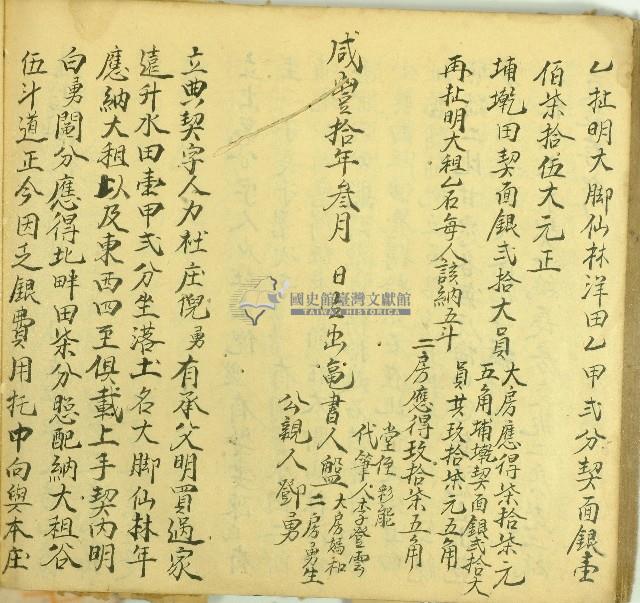 乙批明大脚仙林洋田乙甲弍分契面銀壹
佰柒拾伍大元正
埔墘田契面銀弍拾大員
大房應得柒拾柒元
五角埔墘契面銀弍拾大
員共玖拾柒元五角
再批明大租乙石每人該納五斗
二房應得玖拾柒五角
堂侄 彩能
代筆人李登雲
咸豐拾年叁月 日立出鬮書人盤
大房媽和
二房勇生
公親人鄧勇
立典契字人力社庄倪勇有承父明買過家
遠升水田壹甲弍分坐落土名大脚仙林年
應納大租以及東西四至俱載上手契內明
白勇鬮分應得北畔田柒分照配納大租谷
伍斗道正今因乏銀費用托中向與本庄
國史館臺灣文獻館
TAIWAN HISTORICA